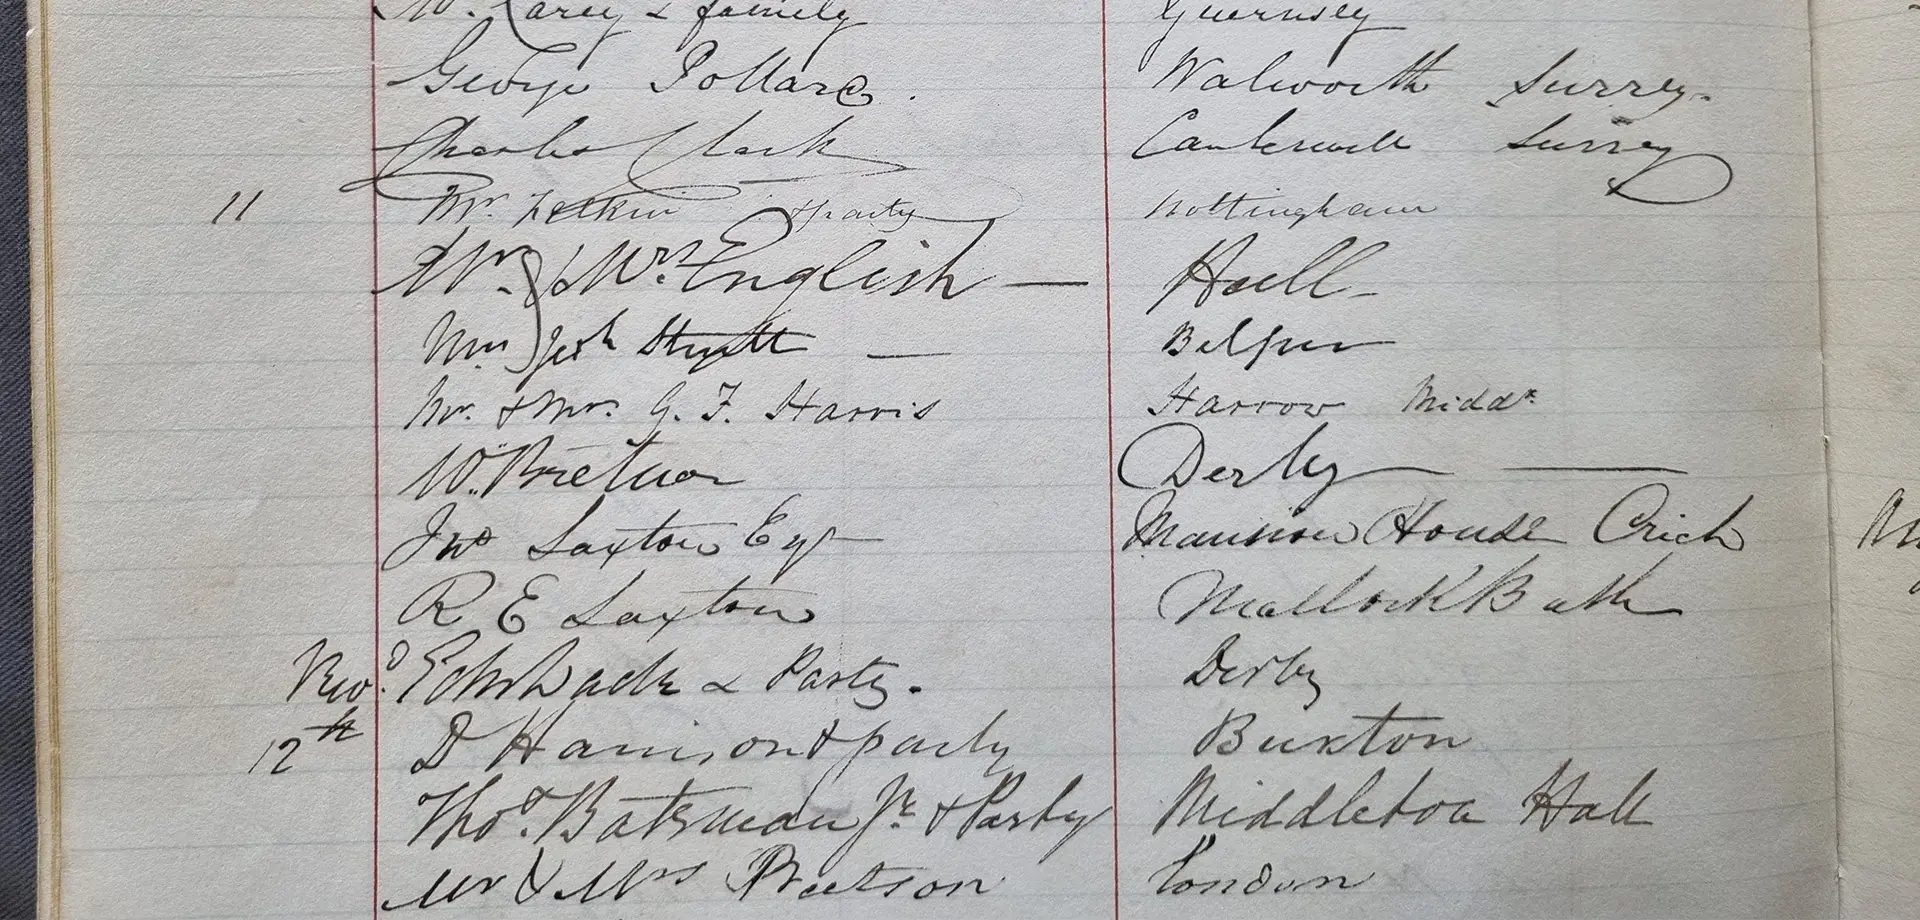 W. Carey & family Guernsey
George Pollard. Walworth Surrey.
Charles Clark Camberwell Surrey
11 Mr. Felkin & party Nottingham
Mr. & Mrs English — Hull
Josh Strutt — Belper
Mr. & Mrs. G. F. Harris Harrow Middx
W. Bretnor Derby
Jno Saxton Esq Mansion House Crich
R E Saxton Matlock Bath
Revd. & Party. Derby
12th D Harrison & party Buxton
Thos. Bateman Jr. & Party Middleton Hall
Mr & Mrs London